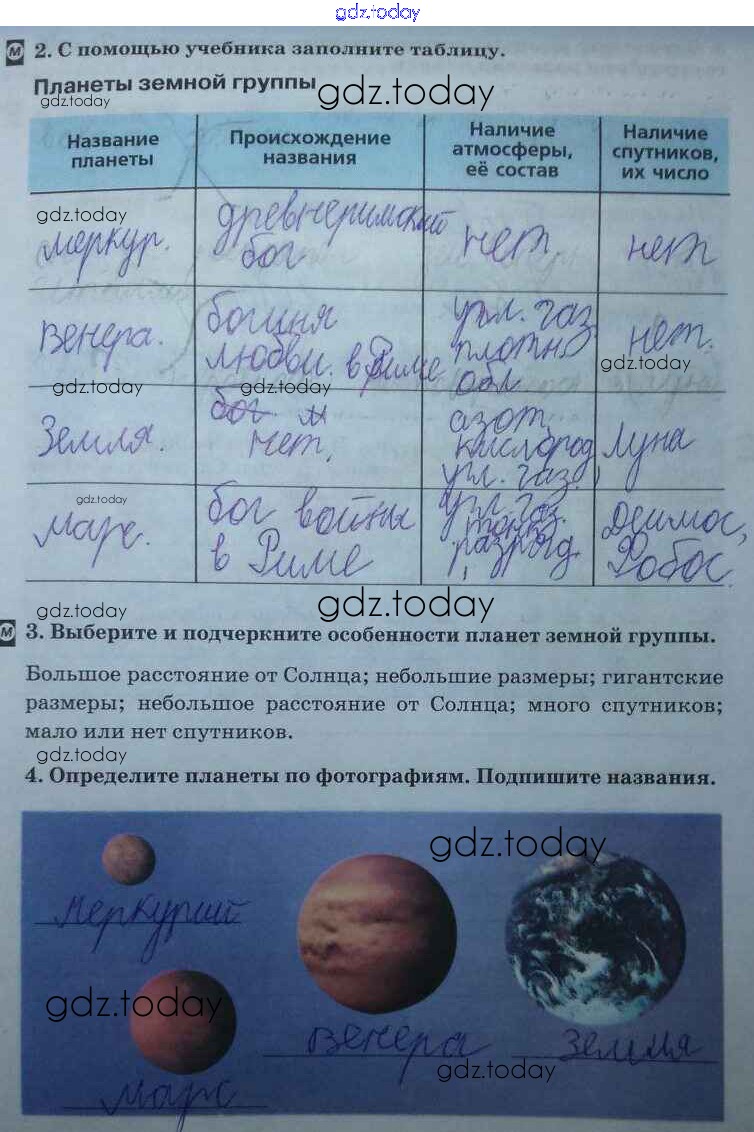 gdz.today
2. С помощью учебника заполните таблицу.
Планеты земной группы
gdz.today
gdz.today
Название планеты
Происхождение названия
Наличие атмосферы, её состав
Наличие спутников, их число
gdz.today
меркур.
древнеримский
бог
нет
нет
венера.
богиня
любви. в Риме
угл. газ
плотн
обл
нет.
gdz.today
gdz.today
gdz.today
Земля.
бог. м
нет.
азот,
кислород
угл. газ.
Луна
gdz.today
марс.
бог войны
в Риме
угл. газ.
разряд.
Деимос,
Фобос.
gdz.today
gdz.today
3. Выберите и подчеркните особенности планет земной группы.
Большое расстояние от Солнца; небольшие размеры; гигантские
размеры; небольшое расстояние от Солнца; много спутников;
мало или нет спутников.
gdz.today
4. Определите планеты по фотографиям. Подпишите названия.
gdz.today
меркурий
gdz.today
венера
земля
gdz.today
марс